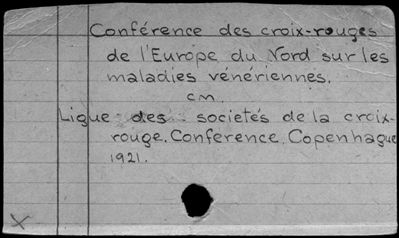 Conférence des croix-rouges
de l'Europe du Nord sur les
maladies vénériennes.
cm.
Ligue des societés de la croix-
rouge. Conference, Copenhague
1921.
X